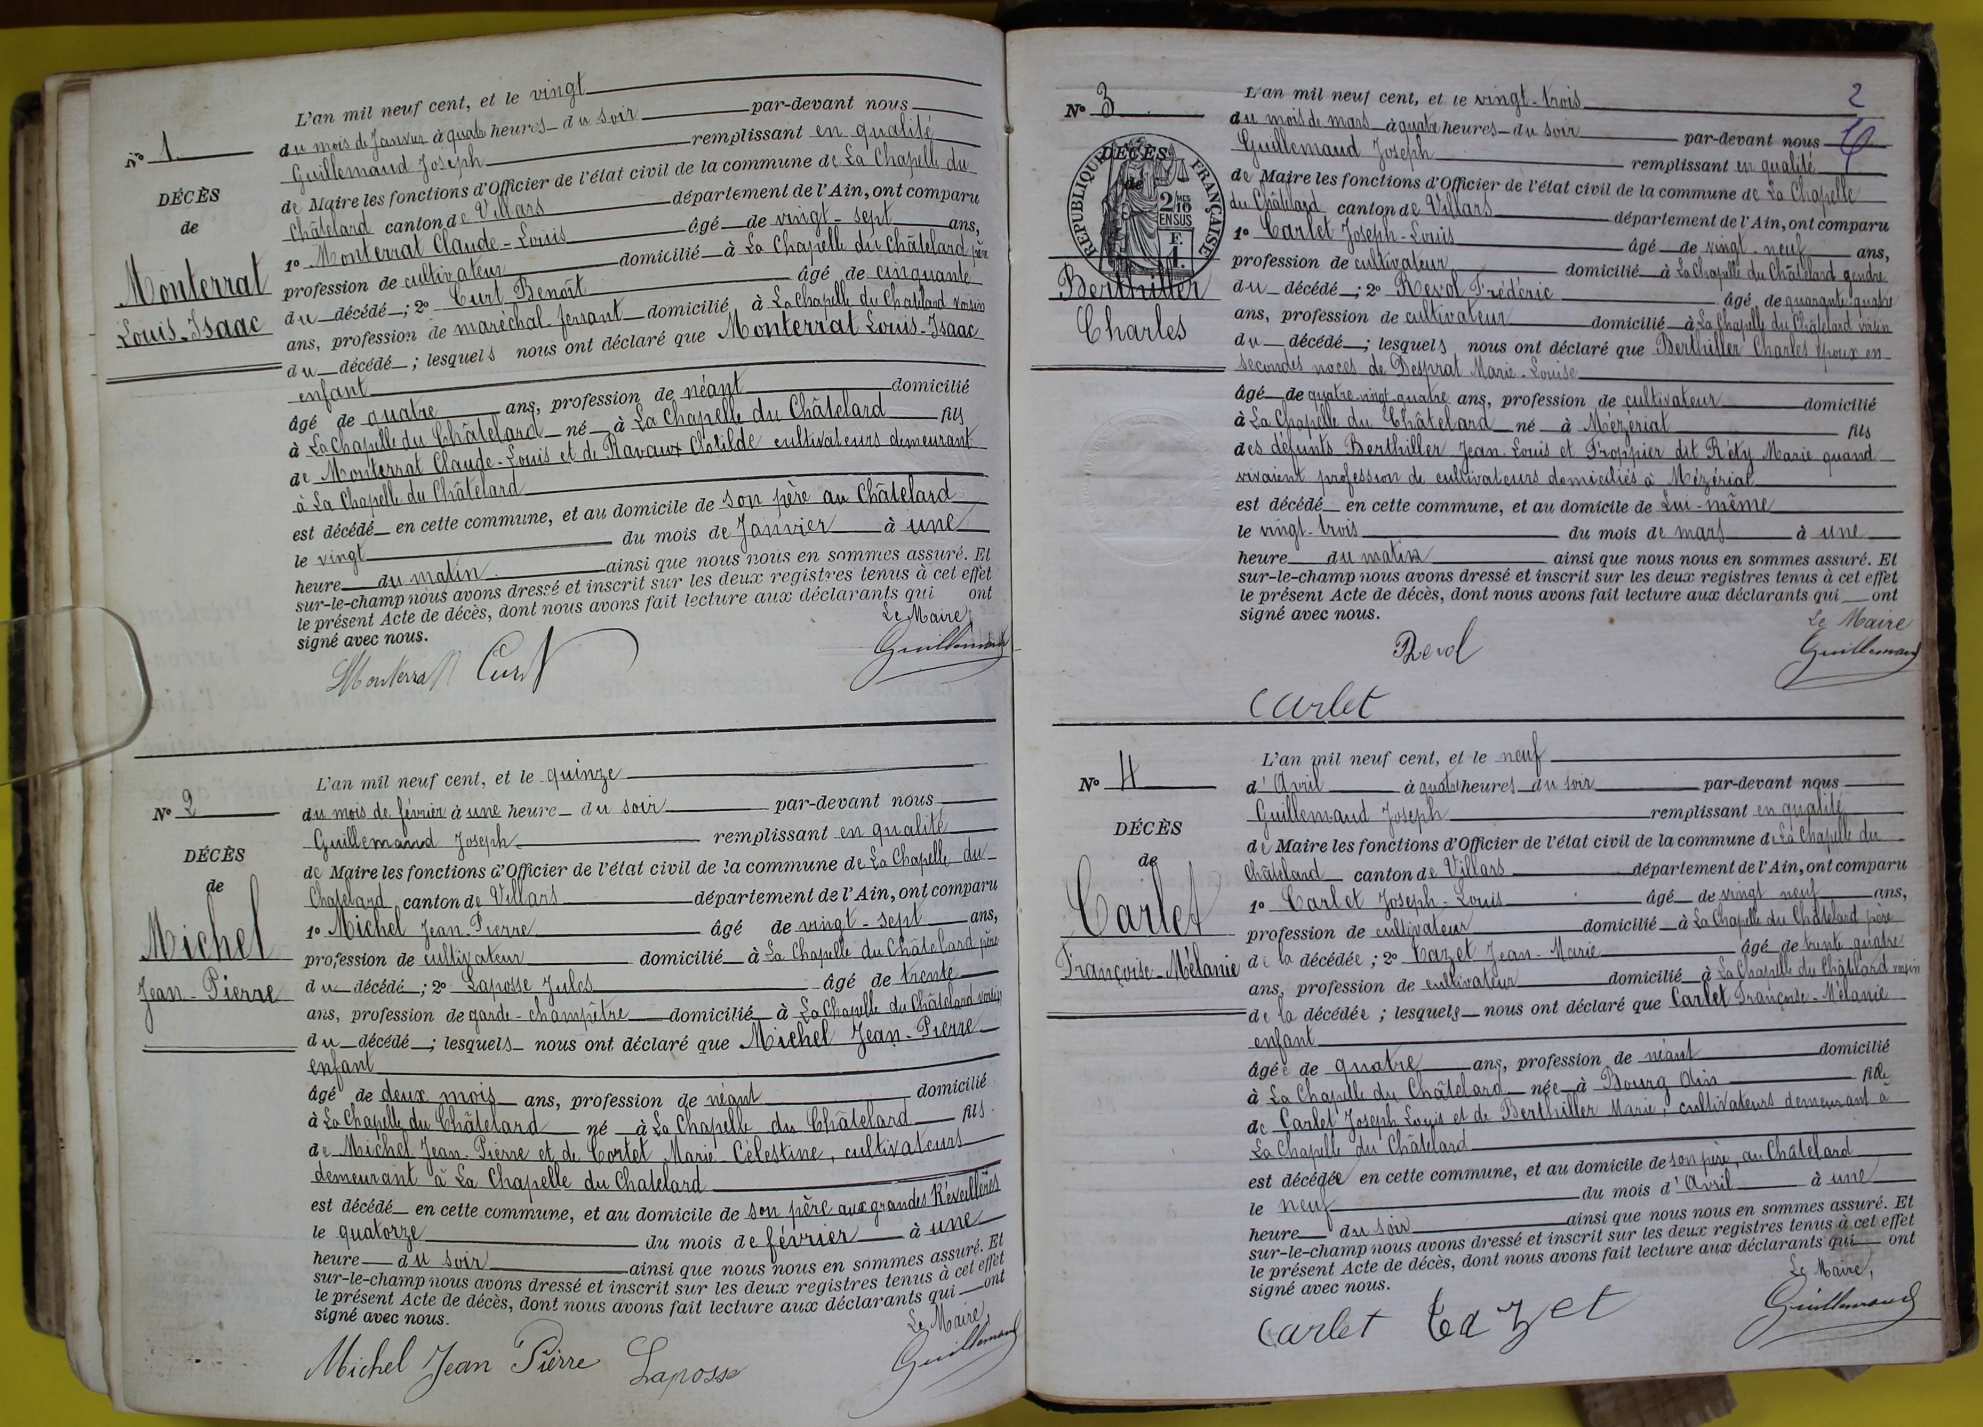 L'an mil neuf cent, et le vingt
N° 1. du mois de Janvier à quatre heures du soir par-devant nous
Guillemaud Joseph remplissant en qualité
DÉCÈS de Maire les fonctions d'Officier de l'état civil de la commune de La Chapelle du
de Châtelard canton de Villars département de l'Ain, ont comparu
1° Monterrat Claude-Louis âgé de vingt-sept ans,
Monterrat profession de cultivateur domicilié à La Chapelle du Châtelard père
du décédé ; 2° Curt Benoît âgé de cinquante
Louis-Isaac ans, profession de maréchal-ferrant domicilié à La Chapelle du Chatelard voisin
du décédé ; lesquels nous ont déclaré que Monterrat Louis-Isaac
enfant
âgé de quatre ans, profession de néant domicilié
à La Chapelle du Châtelard né à La Chapelle du Châtelard fils
de Monterrat Claude-Louis et de Ravaux Clotilde cultivateurs demeurant
à La Chapelle du Châtelard
est décédé en cette commune, et au domicile de son père au Châtelard
le vingt du mois de Janvier à une
heure du matin ainsi que nous nous en sommes assuré. Et
sur-le-champ nous avons dressé et inscrit sur les deux registres tenus à cet effet
le présent Acte de décès, dont nous avons fait lecture aux déclarants qui ont
signé avec nous. Le Maire
Monterrat Curt Guillemaud
L'an mil neuf cent, et le quinze
N° 2 du mois de février à une heure du soir par-devant nous
Guillemaud Joseph remplissant en qualité
DÉCÈS de Maire les fonctions d'Officier de l'état civil de la commune de La Chapelle du
de Chatelard canton de Villars département de l'Ain, ont comparu
1° Michel Jean-Pierre âgé de vingt-sept ans,
Michel profession de cultivateur domicilié à La Chapelle du Châtelard père
Jean-Pierre du décédé ; 2° Laposse Jules âgé de trente
ans, profession de garde-champêtre domicilié à La Chapelle du Châtelard voisin
du décédé ; lesquels nous ont déclaré que Michel Jean-Pierre
enfant
âgé de deux mois ans, profession de néant domicilié
à La Chapelle du Châtelard né à La Chapelle du Châtelard fils
de Michel Jean-Pierre et de Cortet Marie Célestine, cultivateurs
demeurant à La Chapelle du Chatelard
est décédé en cette commune, et au domicile de son père aux grandes Réveillères
le quatorze du mois de février à une
heure du soir ainsi que nous nous en sommes assuré. Et
sur-le-champ nous avons dressé et inscrit sur les deux registres tenus à cet effet
le présent Acte de décès, dont nous avons fait lecture aux déclarants qui ont
signé avec nous. Le Maire,
Michel Jean Pierre Laposse Guillemaud
2
L'an mil neuf cent, et le vingt-trois
N° 3 du mois de mars à quatre heures du soir par-devant nous
Guillemaud Joseph remplissant en qualité
DÉCÈS de Maire les fonctions d'Officier de l'état civil de la commune de La Chapelle
de du Châtelard canton de Villars département de l'Ain, ont comparu
RÉPUBLIQUE FRANÇAISE
2/10 EN SUS
F. 1.
1° Carlet Joseph-Louis âgé de vingt-neuf ans,
profession de cultivateur domicilié à La Chapelle du Châtelard gendre
Berthiller du décédé ; 2° Revol Frédéric âgé de quarante-quatre
Charles ans, profession de cultivateur domicilié à La Chapelle du Châtelard voisin
du décédé ; lesquels nous ont déclaré que Berthiller Charles époux en
secondes noces de Desprat Marie-Louise
âgé de quatre-vingt-quatre ans, profession de cultivateur domicilié
à La Chapelle du Châtelard né à Mézériat fils
des défunts Berthiller Jean-Louis et Froppier dit Réty Marie quand
vivaient profession de cultivateurs domiciliés à Mézériat
est décédé en cette commune, et au domicile de Lui-même
le vingt-trois du mois de mars à une
heure du matin ainsi que nous nous en sommes assuré. Et
sur-le-champ nous avons dressé et inscrit sur les deux registres tenus à cet effet
le présent Acte de décès, dont nous avons fait lecture aux déclarants qui ont
signé avec nous. Le Maire
Revol Guillemaud
Carlet
L'an mil neuf cent, et le neuf
N° 4 d'Avril à quatre heures du soir par-devant nous
Guillemaud Joseph remplissant en qualité
DÉCÈS de Maire les fonctions d'Officier de l'état civil de la commune de La Chapelle du
de Châtelard canton de Villars département de l'Ain, ont comparu
1° Carlet Joseph-Louis âgé de vingt neuf ans,
Carlet profession de cultivateur domicilié à La Chapelle du Châtelard père
Françoise-Mélanie de la décédée ; 2° Cazet Jean-Marie âgé de trente quatre
ans, profession de cultivateur domicilié à La Chapelle du Châtelard voisin
de la décédée ; lesquels nous ont déclaré que Carlet Françoise-Mélanie
enfant
âgée de quatre ans, profession de néant domicilié
à La Chapelle du Châtelard née à Bourg Ain fille
de Carlet Joseph Louis et de Berthiller Marie, cultivateurs demeurant à
La Chapelle du Châtelard
est décédée en cette commune, et au domicile de son père, au Châtelard
le neuf du mois d'Avril à une
heure du soir ainsi que nous nous en sommes assuré. Et
sur-le-champ nous avons dressé et inscrit sur les deux registres tenus à cet effet
le présent Acte de décès, dont nous avons fait lecture aux déclarants qui ont
signé avec nous. Le Maire,
Carlet Cazet Guillemaud